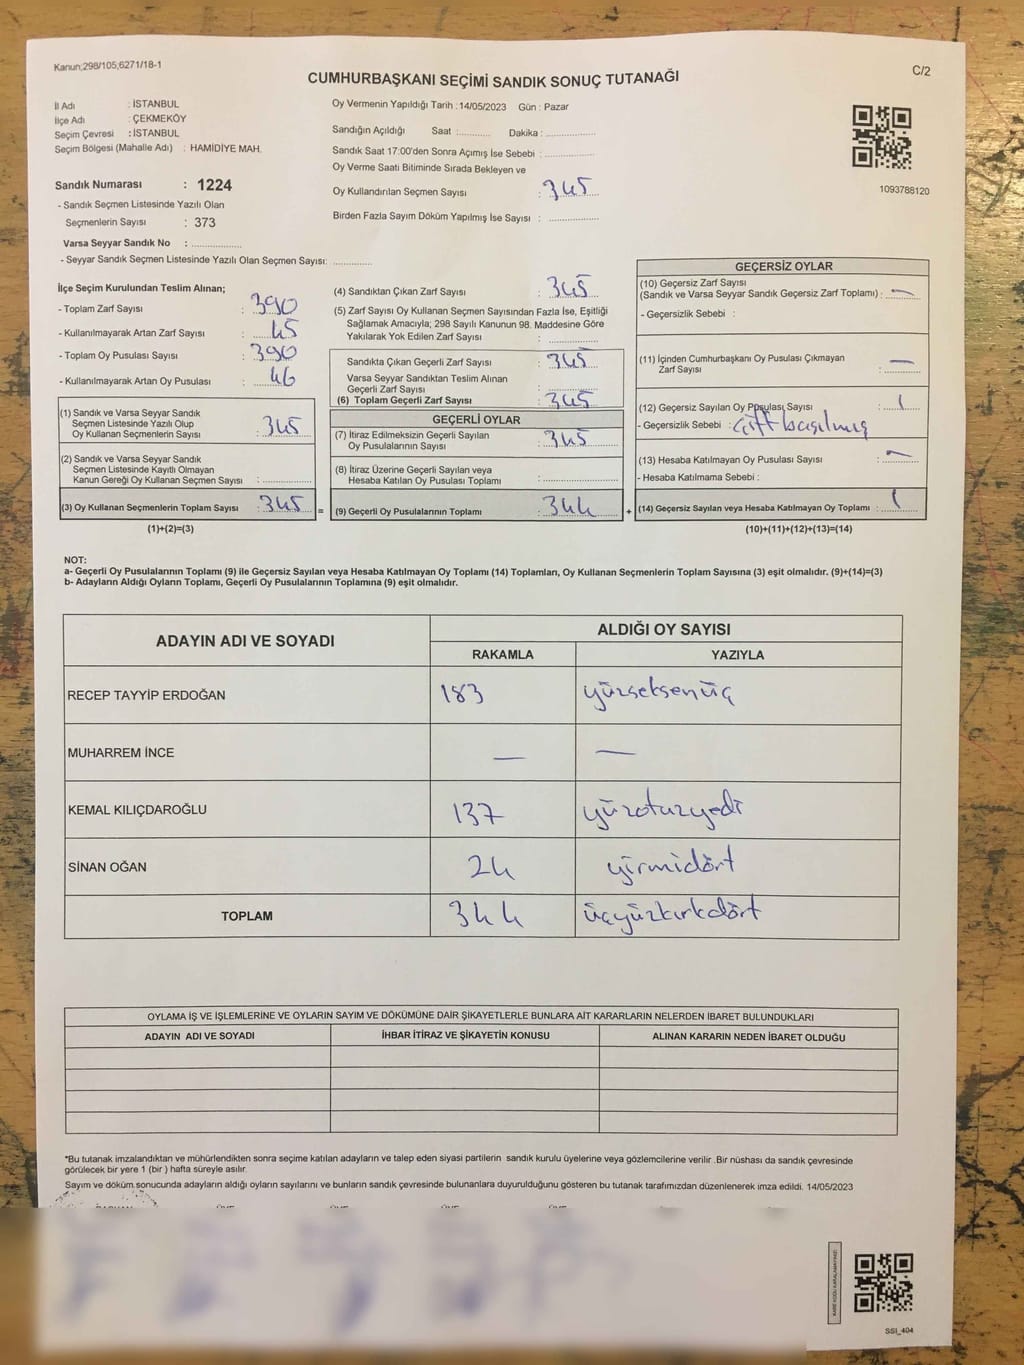 Kanun:298/105,6271/18-1
C/2
CUMHURBAŞKANI SEÇİMİ SANDIK SONUÇ TUTANAĞI
İl Adı : İSTANBUL
İlçe Adı : ÇEKMEKÖY
Seçim Çevresi : İSTANBUL
Seçim Bölgesi (Mahalle Adı) : HAMİDİYE MAH.
Sandık Numarası : 1224
- Sandık Seçmen Listesinde Yazılı Olan
Seçmenlerin Sayısı : 373
Varsa Seyyar Sandık No : ..............
- Seyyar Sandık Seçmen Listesinde Yazılı Olan Seçmen Sayısı: ............
Oy Vermenin Yapıldığı Tarih :14/05/2023 Gün : Pazar
Sandığın Açıldığı Saat :............ Dakika :................
Sandık Saat 17:00'den Sonra Açımış İse Sebebi :................
Oy Verme Saati Bitiminde Sırada Bekleyen ve
Oy Kullandırılan Seçmen Sayısı : 345
Birden Fazla Sayım Döküm Yapılmış İse Sayısı : ................
1093788120
İlçe Seçim Kurulundan Teslim Alınan;
- Toplam Zarf Sayısı : 390
- Kullanılmayarak Artan Zarf Sayısı : 45
- Toplam Oy Pusulası Sayısı : 390
- Kullanılmayarak Artan Oy Pusulası : 46
(1) Sandık ve Varsa Seyyar Sandık
Seçmen Listesinde Yazılı Olup
Oy Kullanan Seçmenlerin Sayısı : 345
(2) Sandık ve Varsa Seyyar Sandık
Seçmen Listesinde Kayıtlı Olmayan
Kanun Gereği Oy Kullanan Seçmen Sayısı :..............
(3) Oy Kullanan Seçmenlerin Toplam Sayısı : 345
(1)+(2)=(3)
(4) Sandıktan Çıkan Zarf Sayısı : 345
(5) Zarf Sayısı Oy Kullanan Seçmen Sayısından Fazla İse, Eşitliği
Sağlamak Amacıyla; 298 Sayılı Kanunun 98. Maddesine Göre
Yakılarak Yok Edilen Zarf Sayısı : ..............
Sandıkta Çıkan Geçerli Zarf Sayısı : 345
Varsa Seyyar Sandıktan Teslim Alınan
Geçerli Zarf Sayısı : ..............
(6) Toplam Geçerli Zarf Sayısı : 345
GEÇERLİ OYLAR
(7) İtiraz Edilmeksizin Geçerli Sayılan
Oy Pusulalarının Sayısı : 345
(8) İtiraz Üzerine Geçerli Sayılan veya
Hesaba Katılan Oy Pusulası Toplamı :................
= (9) Geçerli Oy Pusulalarının Toplamı : 344
GEÇERSİZ OYLAR
(10) Geçersiz Zarf Sayısı
(Sandık ve Varsa Seyyar Sandık Geçersiz Zarf Toplamı) : —
- Geçersizlik Sebebi :
(11) İçinden Cumhurbaşkanı Oy Pusulası Çıkmayan
Zarf Sayısı : —
(12) Geçersiz Sayılan Oy Pusulası Sayısı : 1
- Geçersizlik Sebebi : çift basılmış
(13) Hesaba Katılmayan Oy Pusulası Sayısı : —
- Hesaba Katılmama Sebebi :
+ (14) Geçersiz Sayılan veya Hesaba Katılmayan Oy Toplamı : 1
(10)+(11)+(12)+(13)=(14)
NOT:
a- Geçerli Oy Pusulalarının Toplamı (9) ile Geçersiz Sayılan veya Hesaba Katılmayan Oy Toplamı (14) Toplamları, Oy Kullanan Seçmenlerin Toplam Sayısına (3) eşit olmalıdır. (9)+(14)=(3)
b- Adayların Aldığı Oyların Toplamı, Geçerli Oy Pusulalarının Toplamına (9) eşit olmalıdır.
ADAYIN ADI VE SOYADI
ALDIĞI OY SAYISI
RAKAMLA YAZIYLA
RECEP TAYYİP ERDOĞAN 183 yüzseksenüç
MUHARREM İNCE — —
KEMAL KILIÇDAROĞLU 137 yüzotuzyedi
SİNAN OĞAN 24 yirmidört
TOPLAM 344 üçyüzkırkdört
OYLAMA İŞ VE İŞLEMLERİNE VE OYLARIN SAYIM VE DÖKÜMÜNE DAİR ŞİKAYETLERLE BUNLARA AİT KARARLARIN NELERDEN İBARET BULUNDUKLARI
ADAYIN ADI VE SOYADI İHBAR İTİRAZ VE ŞİKAYETİN KONUSU ALINAN KARARIN NEDEN İBARET OLDUĞU
*Bu tutanak imzalandıktan ve mühürlendikten sonra seçime katılan adayların ve talep eden siyasi partilerin sandık kurulu üyelerine veya gözlemcilerine verilir .Bir nüshası da sandık çevresinde
görülecek bir yere 1 (bir ) hafta süreyle asılır.
Sayım ve döküm sonucunda adayların aldığı oyların sayılarını ve bunların sandık çevresinde bulunanlara duyurulduğunu gösteren bu tutanak tarafımızdan düzenlenerek imza edildi. 14/05/2023
KARE KODU KARALAMAYINIZ!
SSI_404